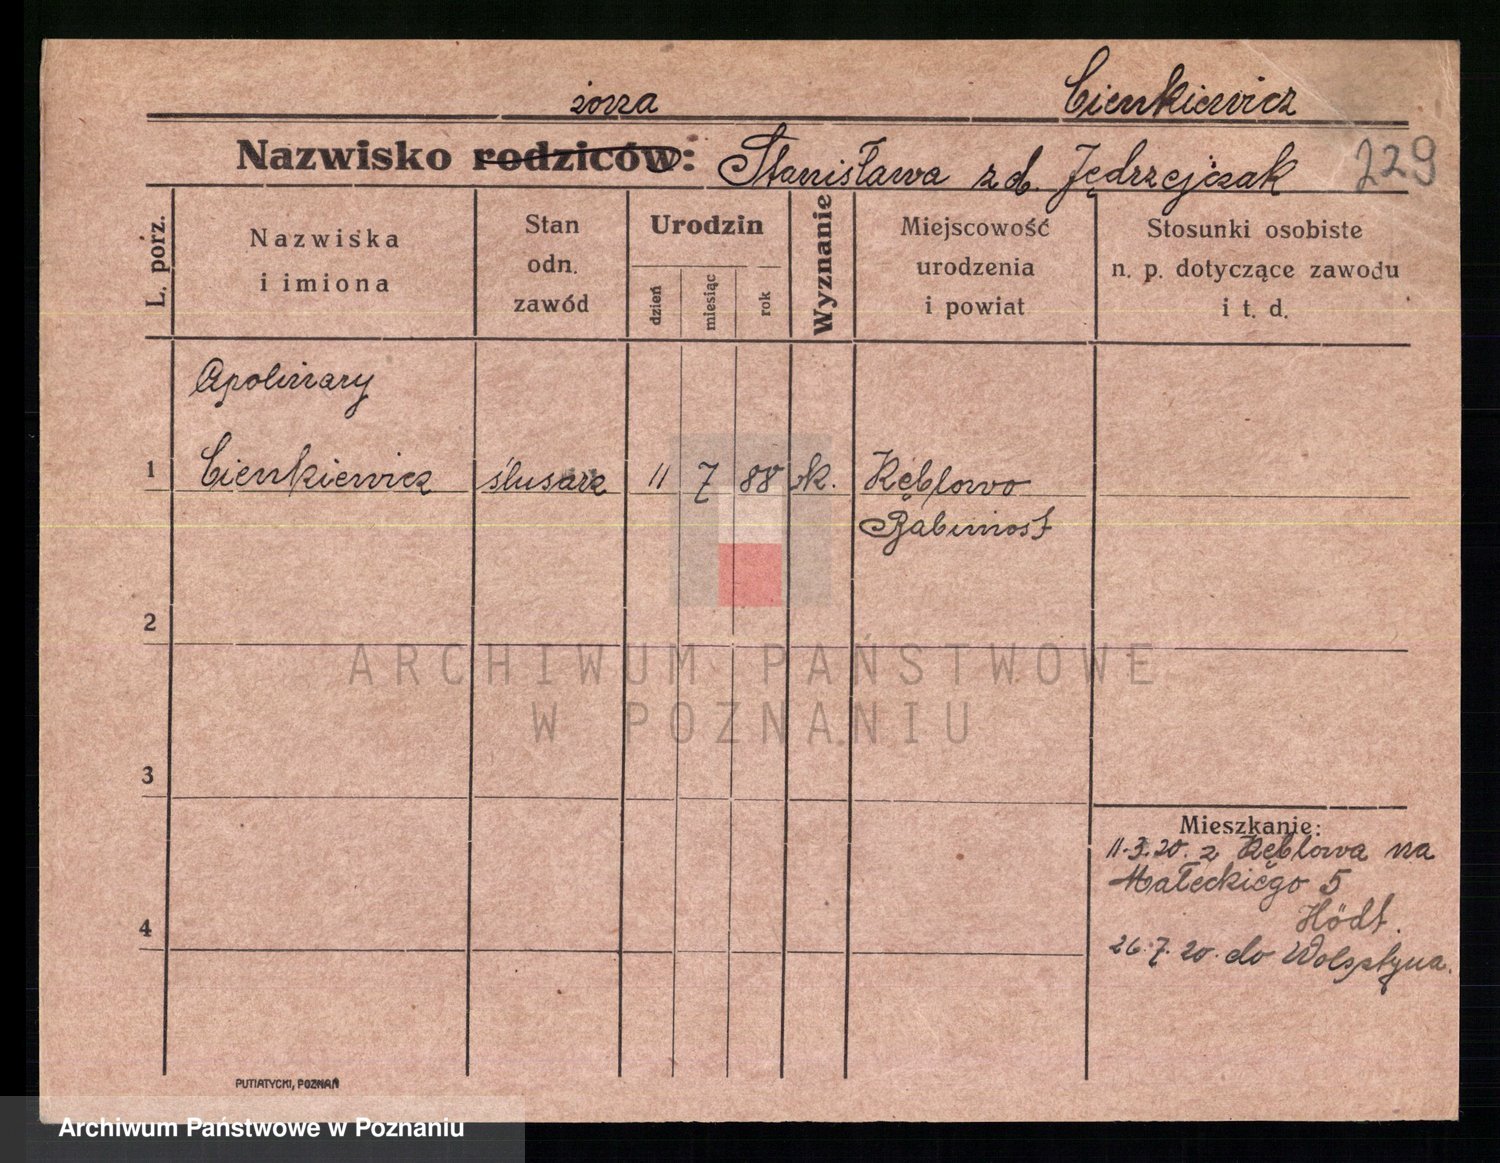 żona Cienkiewicz
Nazwisko rodziców: Stanisława z d. Jędrzejczak 229
L. porz.
Nazwiska
i imiona
Stan
odn.
zawód
Urodzin
dzień
miesiąc
rok
Wyznanie
Miejscowość
urodzenia
i powiat
Stosunki osobiste
n. p. dotyczące zawodu
i t. d.
Apolinary
1 Cienkiewicz ślusarz 11 7 88 rk. Kębłowo
Babimost
2
ARCHIWUM PAŃSTWOWE
W POZNANIU
3
4
Mieszkanie:
11.3.20. z Kębłowa na
Małeckiego 5
Hödt.
26.7.20. do Wolsztyna.
PUTIATYCKI, POZNAŃ
Archiwum Państwowe w Poznaniu